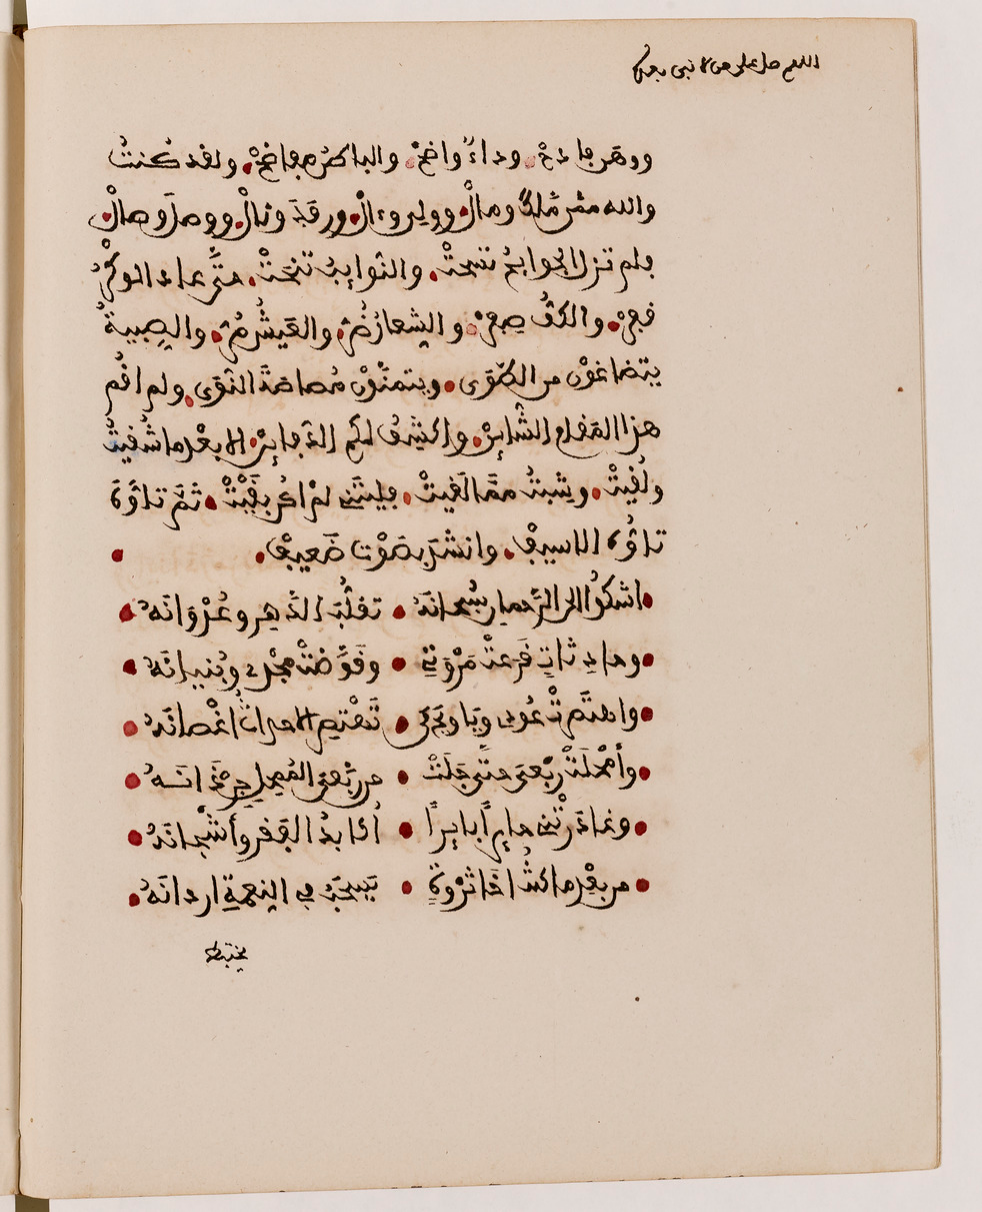 اللهم صل على من لا نبي بعده
ووهن فادح، وداءٌ واضح، والباطن فاضح، ولقد كنتُ
والله ممن ملك ومال، وولي وءال، ورفد ونال، ووصل وصال،
فلم تزل الجوايح تسحت، والنوايب تنحت، حتى عاد الوكر
قفر، والكف صفر، والشعار ضر، والعيش مر، والصبية
يتضاغون من الطوى، ويتمنون مصاصة النوى، ولم اقم
هذا المقام الشاين، واكشف لكم الدفاين، الا بعد ما شقيت
ولقيت، وشبت مما لقيت، فليتني لم اكن بقيت، ثم تاوه
تاوه الاسيف، وانشد بصوت ضعيف،
اشكوا الى الرحمان سبحانه • تقلب الدهر وعدوانه
وحادثات قرعت مروتي • وقوضت مجدي وبنيانه
واهتصرت عودي ويا ويح من • تهتصر الاحداث اغصانه
وأمحلت ربعى حتى جلت • من ربعي الممحل جرذانه
وغادرتني حايراً بايراً • أكابد الفقر وأشجانه
من بعد ما كنت اخا ثروة • يسحب في النعمة اردانه
يختبط